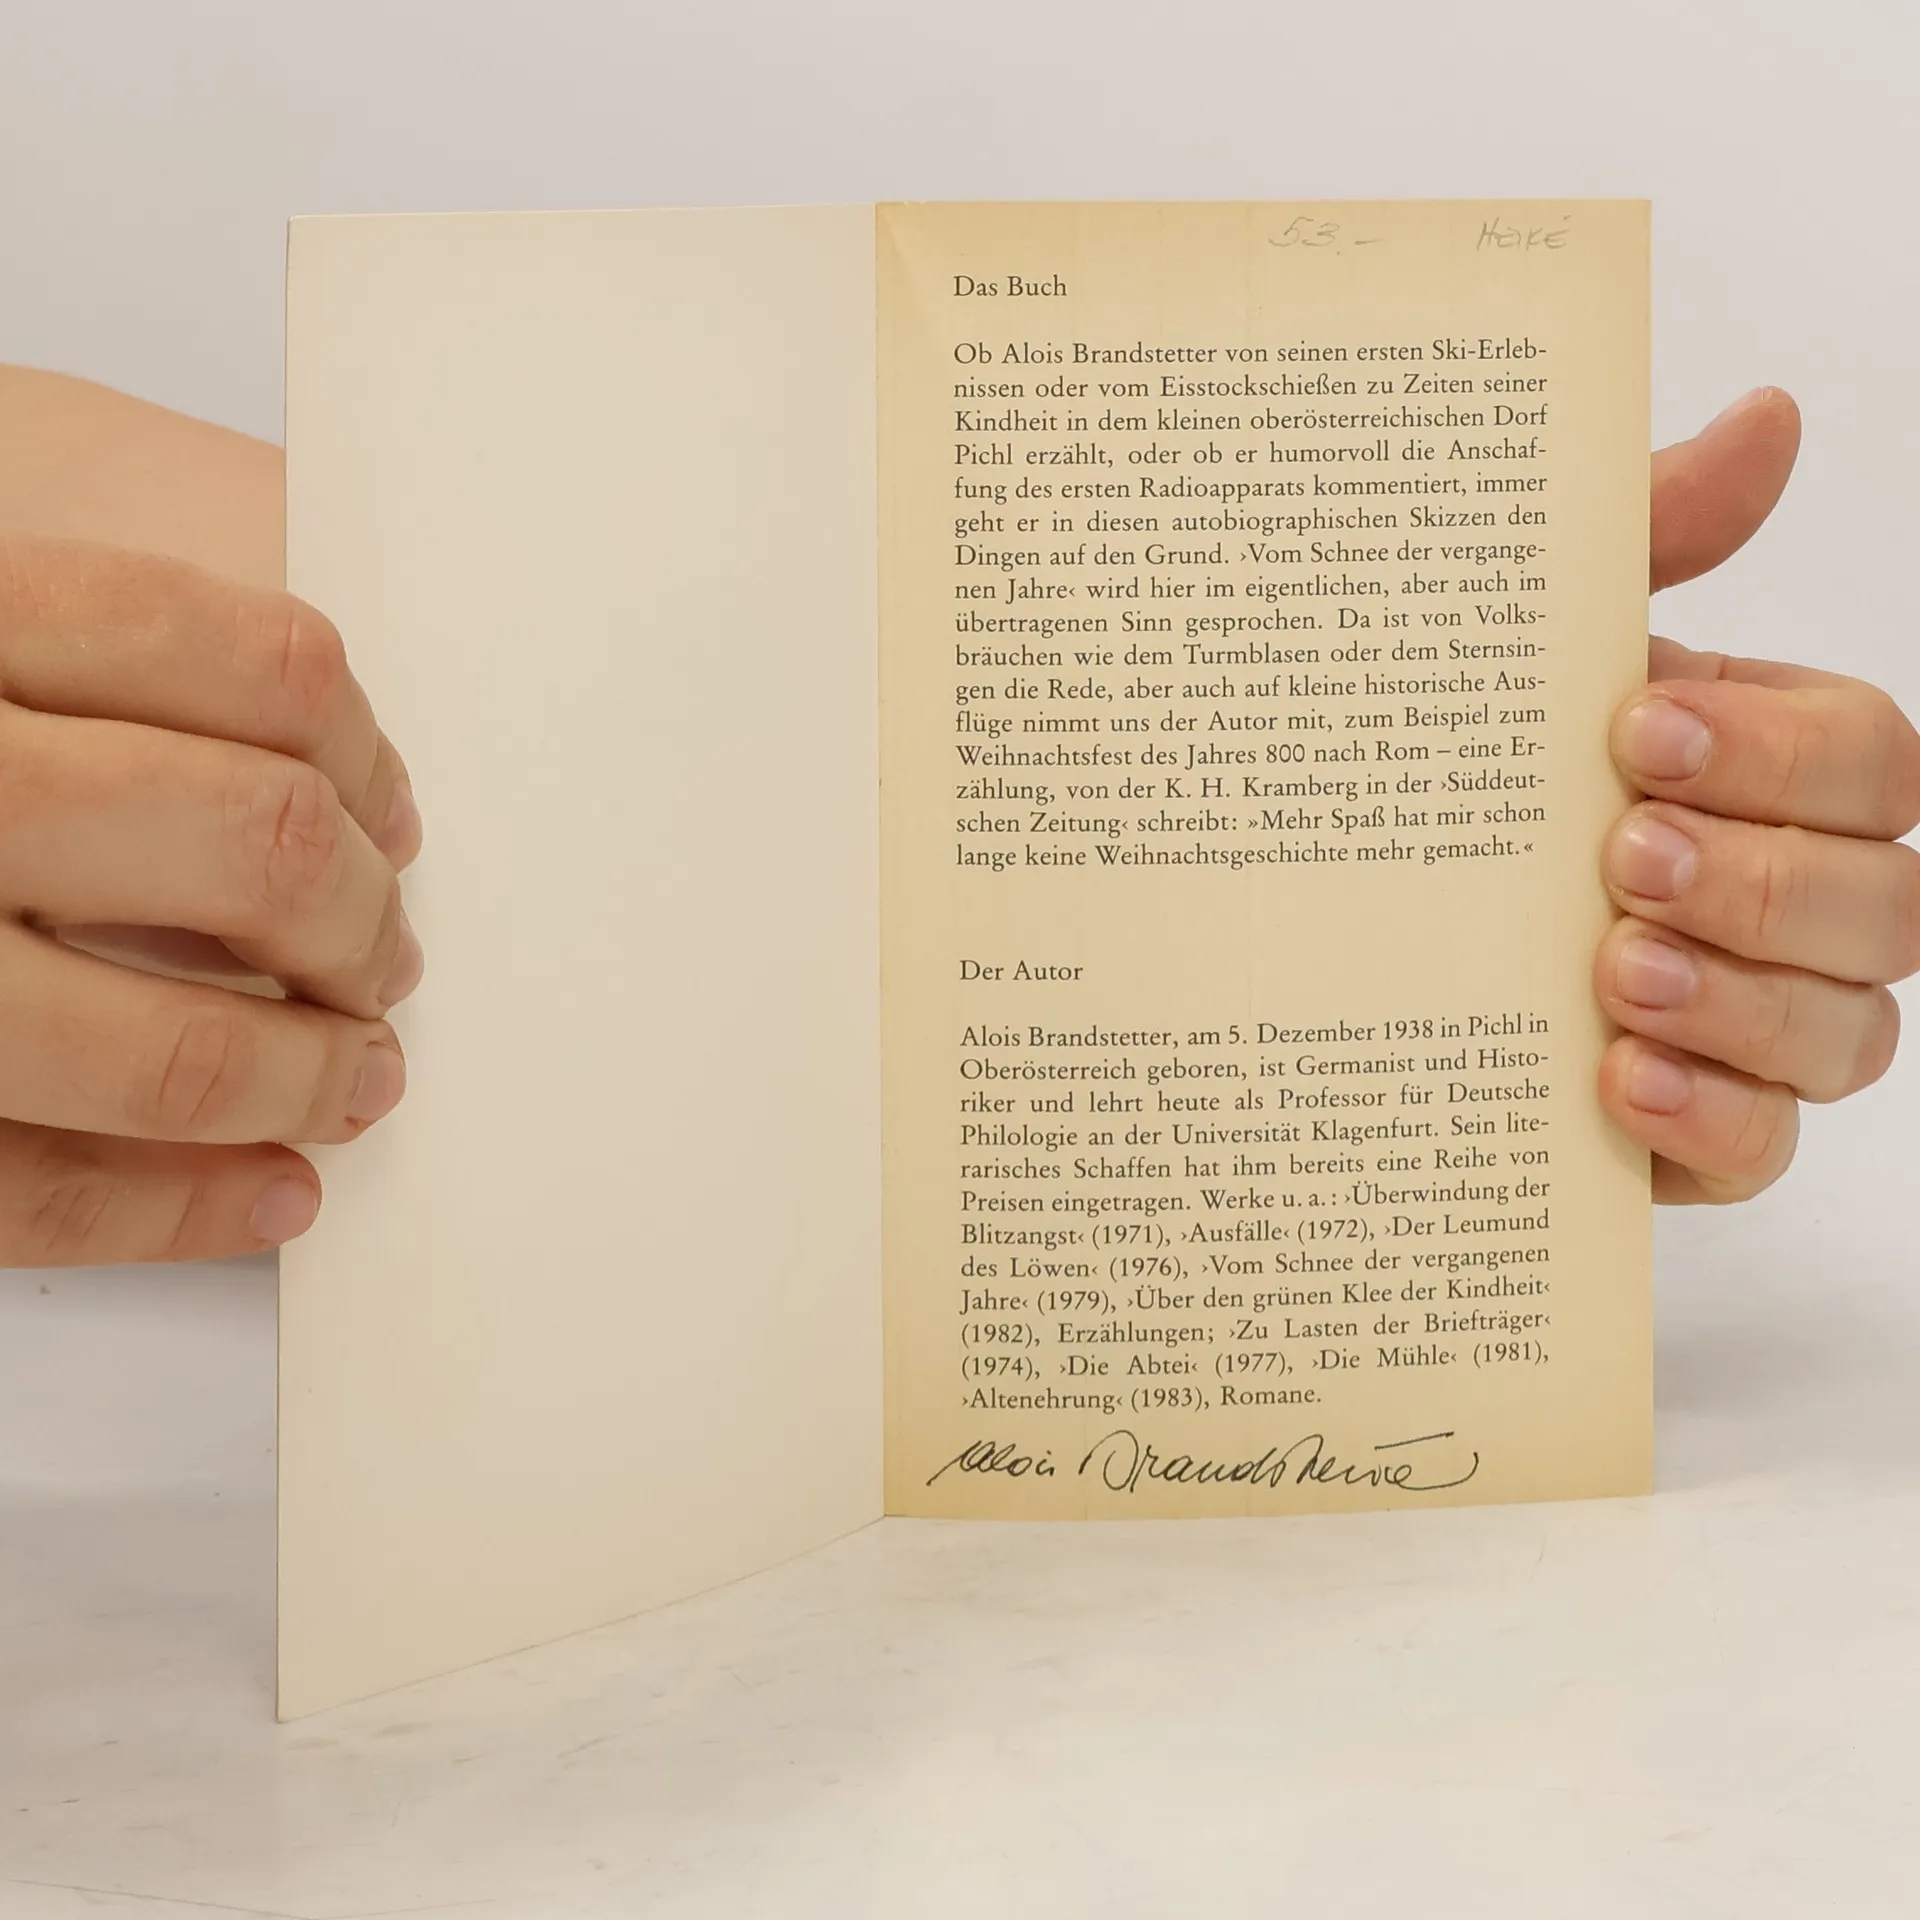 53.- HEIKE
Das Buch
Ob Alois Brandstetter von seinen ersten Ski-Erleb-
nissen oder vom Eisstockschießen zu Zeiten seiner
Kindheit in dem kleinen oberösterreichischen Dorf
Pichl erzählt, oder ob er humorvoll die Anschaf-
fung des ersten Radioapparats kommentiert, immer
geht er in diesen autobiographischen Skizzen den
Dingen auf den Grund. ›Vom Schnee der vergange-
nen Jahre‹ wird hier im eigentlichen, aber auch im
übertragenen Sinn gesprochen. Da ist von Volks-
bräuchen wie dem Turmblasen oder dem Sternsin-
gen die Rede, aber auch auf kleine historische Aus-
flüge nimmt uns der Autor mit, zum Beispiel zum
Weihnachtsfest des Jahres 800 nach Rom – eine Er-
zählung, von der K. H. Kramberg in der ›Süddeut-
schen Zeitung‹ schreibt: »Mehr Spaß hat mir schon
lange keine Weihnachtsgeschichte mehr gemacht.«
Der Autor
Alois Brandstetter, am 5. Dezember 1938 in Pichl in
Oberösterreich geboren, ist Germanist und Histo-
riker und lehrt heute als Professor für Deutsche
Philologie an der Universität Klagenfurt. Sein lite-
rarisches Schaffen hat ihm bereits eine Reihe von
Preisen eingetragen. Werke u. a.: ›Überwindung der
Blitzangst‹ (1971), ›Ausfälle‹ (1972), ›Der Leumund
des Löwen‹ (1976), ›Vom Schnee der vergangenen
Jahre‹ (1979), ›Über den grünen Klee der Kindheit‹
(1982), Erzählungen; ›Zu Lasten der Briefträger‹
(1974), ›Die Abtei‹ (1977), ›Die Mühle‹ (1981),
›Altenehrung‹ (1983), Romane.
Alois Brandstetter